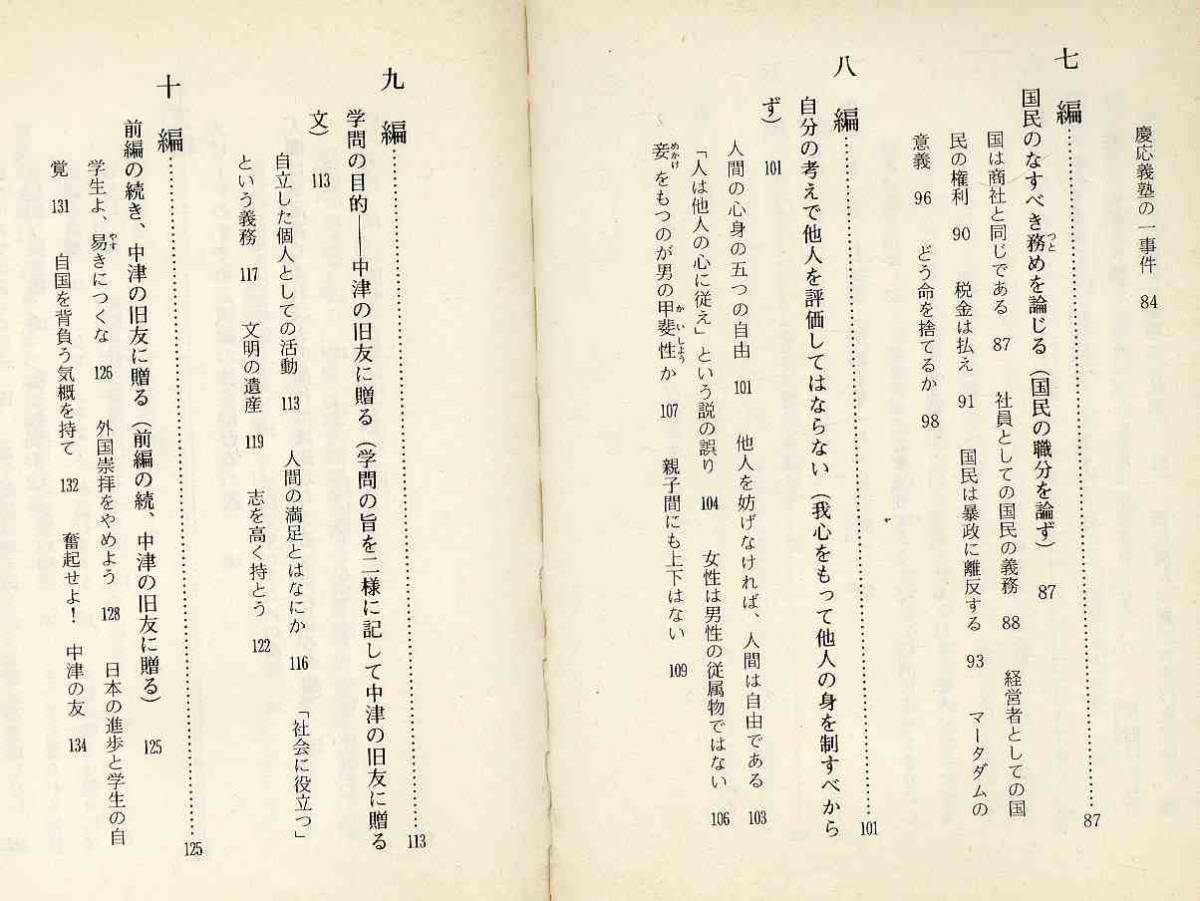 慶応義塾の一事件 84
七編……87
国民のなすべき務めを論じる(国民の職分を論ず) 87
国は商社と同じである 87 社員としての国民の義務 88 経営者としての国
民の権利 90 税金は払え 91 国民は暴政に離反する 93 マータダムの
意義 96 どう命を捨てるか 98
八編……101
自分の考えで他人を評価してはならない(我心をもって他人の身を制すべから
ず) 101
人間の心身の五つの自由 101 他人を妨げなければ、人間は自由である 103
「人は他人の心に従え」という説の誤り 104 女性は男性の従属物ではない 106
妾をもつのが男の甲斐性か 107 親子間にも上下はない 109
九編……113
学問の目的——中津の旧友に贈る(学問の旨を二様に記して中津の旧友に贈る
文) 113
自立した個人としての活動 113 人間の満足とはなにか 116 「社会に役立つ」
という義務 117 文明の遺産 119 志を高く持とう 122
十編……125
前編の続き、中津の旧友に贈る(前編の続、中津の旧友に贈る) 125
学生よ、易きにつくな 126 外国崇拝をやめよう 128 日本の進歩と学生の自
覚 131 自国を背負う気概を持て 132 奮起せよ! 中津の友 134